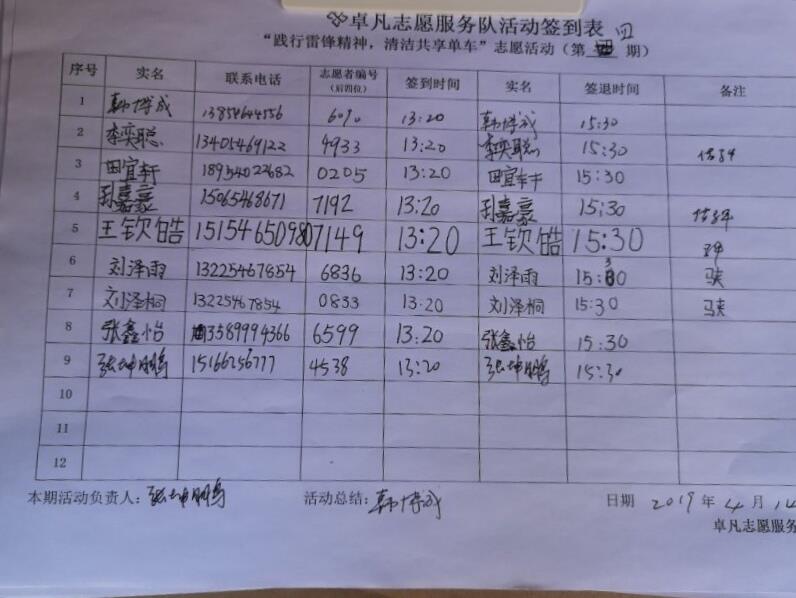 卓凡志愿服务队活动签到表 四
“践行雷锋精神,清洁共享单车”志愿活动(第 期)
序号 实名 联系电话 志愿者编号(后四位) 签到时间 实名 签退时间 备注
1 韩博成 6090 13:20 韩博成 15:30
2 李奕聪 13405469122 4933 13:20 李奕聪 15:30
3 田宜轩 18954022682 0205 13:20 田宜轩 15:30
4 孙嘉豪 15065468671 7192 13:20 孙嘉豪 15:30
5 王钦皓 15154650980 7149 13:20 王钦皓 15:30
6 刘泽雨 13225467854 6836 13:20 刘泽雨 15:30
7 刘泽桐 13225467854 0833 13:20 刘泽桐 15:30
8 张鑫怡 13589994366 6599 13:20 张鑫怡 15:30
9 张坤鹏 15166256777 4538 13:20 张坤鹏 15:30
10
11
12
本期活动负责人: 张坤鹏 活动总结: 韩博成 日期 2019 年 4 月 14
卓凡志愿服务